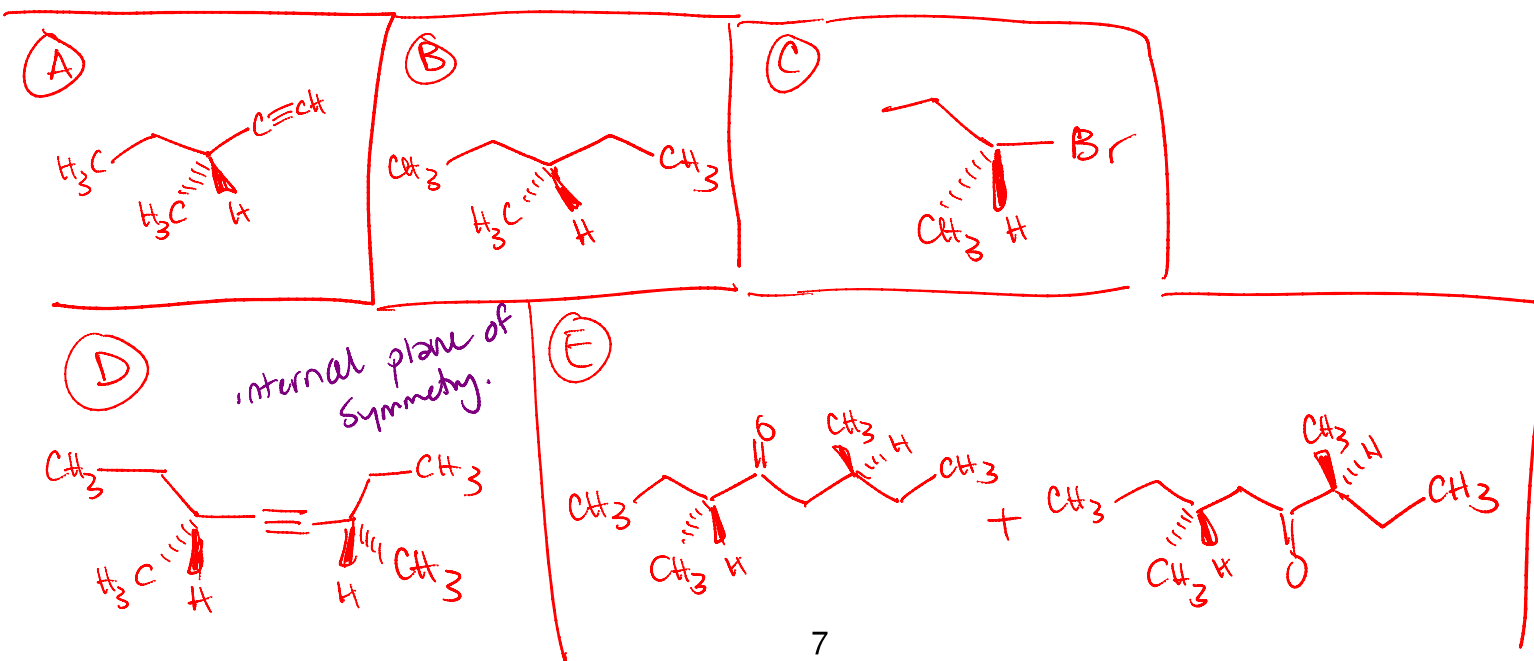 A
H3C
C≡CH
H3C
H
B
CH3
CH3
H3C
H
C
Br
CH3 H
D
internal plane of
symmetry.
CH3
CH3
H3C
H
H
CH3
E
O
CH3
H
CH3
CH3
CH3
H
+
CH3
H
CH3
CH3
CH3
H
O
7